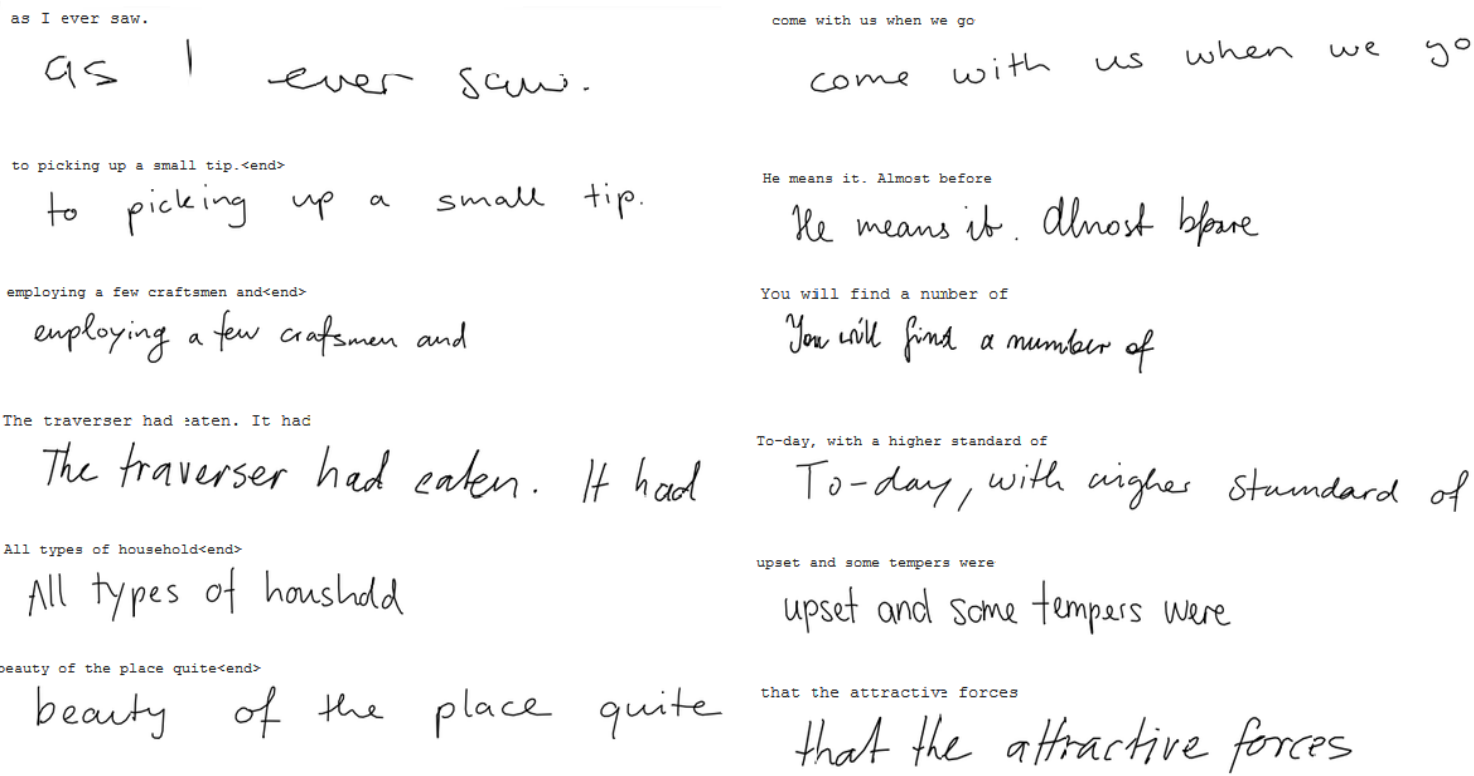 as I ever saw.
as I ever saw.
to picking up a small tip.<end>
to picking up a small tip.
employing a few craftsmen and<end>
employing a few crafsmen and
The traverser had eaten. It had
The traverser had eaten. It had
All types of household<end>
All types of houshold
beauty of the place quite<end>
beauty of the place quite
come with us when we go
come with us when we go
He means it. Almost before
He means it. Almost bfore
You will find a number of
You will find a number of
To-day, with a higher standard of
To-day, with higher stamdard of
upset and some tempers were
upset and some tempers were
that the attractive forces
that the attractive forces